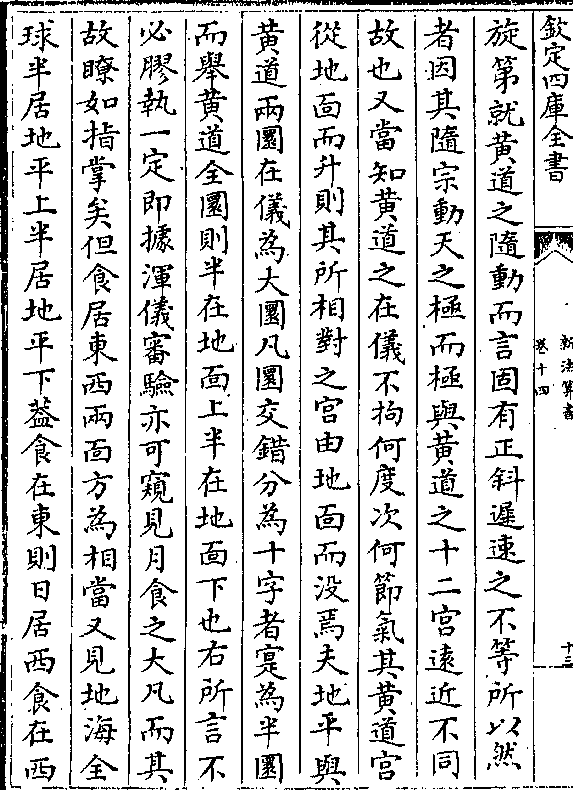 欽定四庫全書
新法算書
卷十四
十三
旋第就黄道之隨動而言固有正斜遲速之不等所以然
者因其隨宗動天之極而極與黄道之十二宮遠近不同
故也又當知黄道之在儀不拘何度次何節氣其黄道宮
從地面而升則其所相對之宮由地面而没焉夫地平與
黄道兩圜在儀為大圜凡圜交錯分為十字者寔為半圜
而舉黄道全圜則半在地面上半在地面下也右所言不
必膠執一定即據渾儀審驗亦可窺見月食之大凡而其
故瞭如指掌矣但食居東西兩面方為相當又見地海全
球半居地平上半居地平下葢食在東則日居西食在西